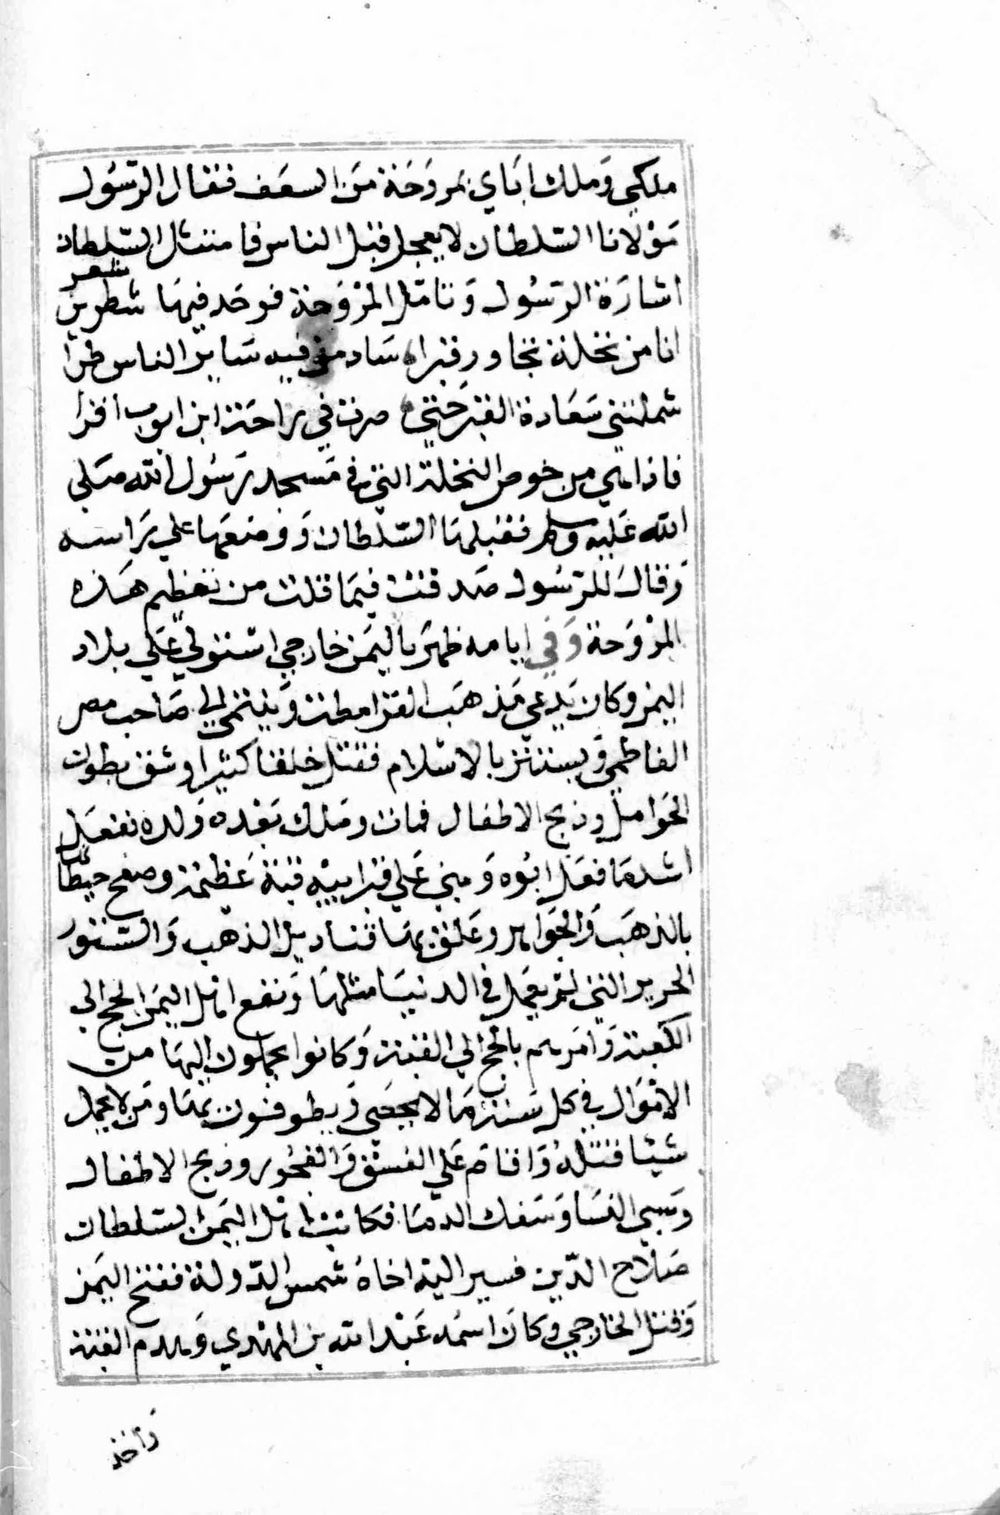 ملكي وملك اباي بمروحة من السعف فقال الرسول
مولانا السلطان لا يعجل قبل الناس فامتثل السلطان
اشارة الرسول وتامل المروحة فوجد فيها شطرين شعر
انا من نخلة تجاور قبرا ساد من فيه ساير الناس طرا
شملتني سعادة القبر حتي صرت في راحة ابن ايوب اقرا
فاذا هي من خوص النخلة التي في مسجد رسول الله صلي
الله عليه وسلم فقبلها السلطان ووضعها علي راسه
وقال للرسول صدقت فيما قلت من تعظيم هذه
المروحة وفي ايامه ظهر باليمن خارجي استولي علي بلاد
اليمن وكان يدعي مذهب القرامطة وينتمي الي صاحب مصر
الفاطمي ويستتر بالاسلام فقتل خلقا كثيرا وشق بطون
الحوامل وذبح الاطفال فمات وملك بعده ولده ففعل
اشد ما فعل ابوه وبني علي قبر ابيه قبة عظيمة وصفح حيطانها
بالذهب والجواهر وعلق بها قناديل الذهب والستور
الحرير التي لم يعمل في الدنيا مثلها ومنع اهل اليمن الحج الي
الكعبة وامرهم بالحج الي القبة وكانوا يحملون اليها من
الاموال في كل سنة ما لا يحصي ويطوفون بها ومن لا يحمل
شيئا قتله واقام علي الفسق والفجور وذبح الاطفال
وسبي النسا وسفك الدما فكاتب اهل اليمن السلطان
صلاح الدين فسير اليه اخاه شمس الدولة ففتح اليمن
وقتل الخارجي وكان اسمه عبد الله بن المهدي وهدم القبة
واخذ